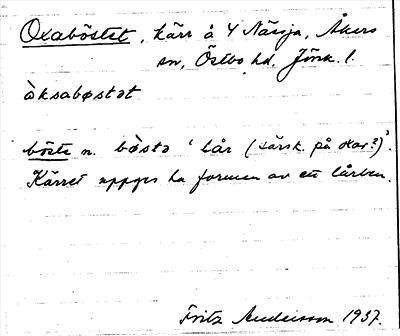 Oxaböstet, kärr å Y Nässja, Åkers
sn, Östbo hd. Jönk. l.
òksabøstət
böste n. bøstə 'lår (särsk. på oxe?)'.
Kärret uppges ha formen av ett lårben.
Fritz Andersson 1937.